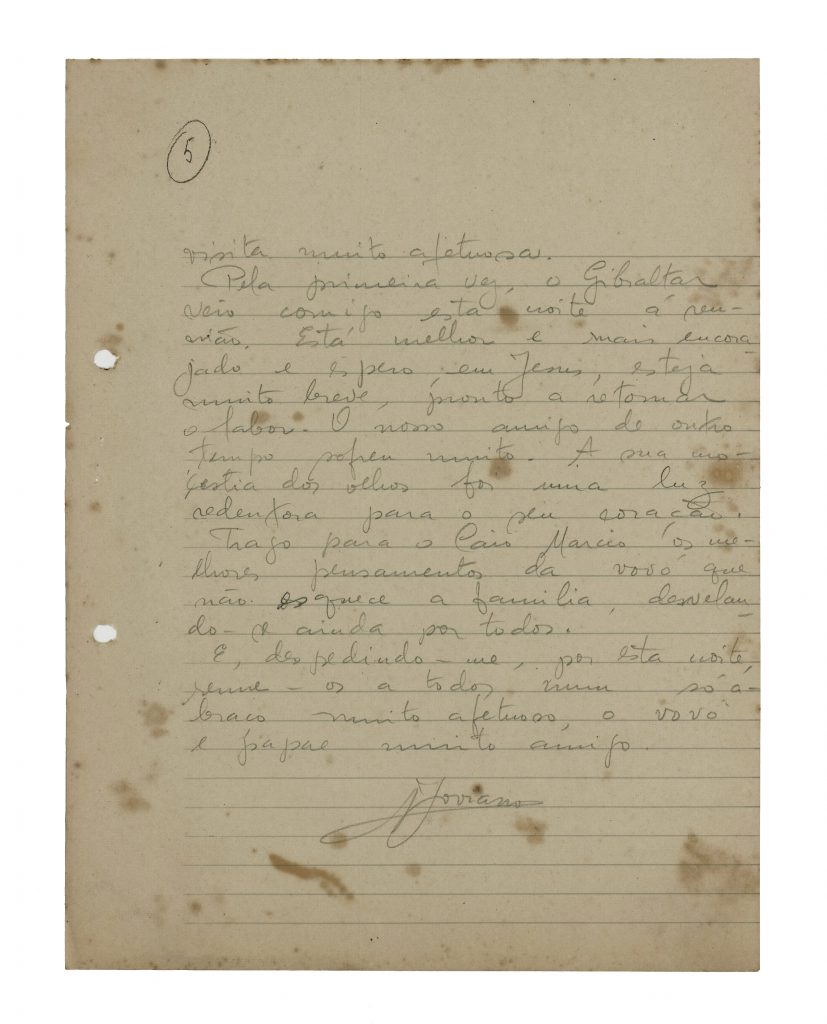 5
visita muito afetuosa.
Pela primeira vez, o Gibraltar
veio comigo esta noite á reu-
nião. Está melhor e mais encora-
jado e espero, em Jesus, esteja
muito breve, pronto a retomar
o labor. O nosso amigo de outro
tempo sofreu muito. A sua mo-
lestia dos olhos foi uma luz
redentora para o seu coração.
Trago para o Caio Marcio os me-
lhores pensamentos da vovó que
não esquece a familia, desvelan-
do-se ainda por todos.
E, despedindo-me, por esta noite,
reune-os a todos num só a-
braço muito afetuoso, o vovô
e papae muito amigo.
A Joviano